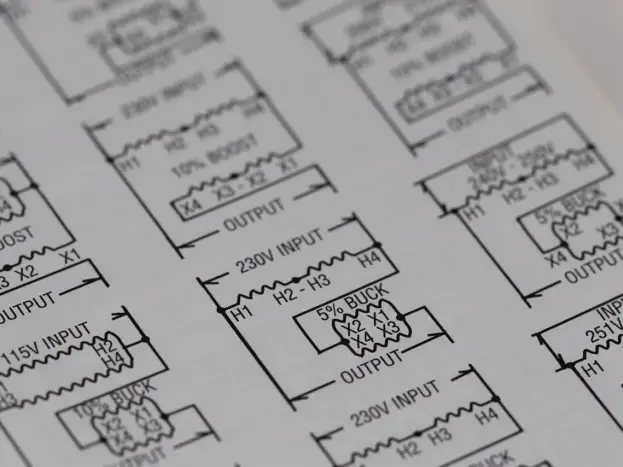 OUTPUT
230V INPUT
H1 H2 H3 H4
10% BOOST
X4 X3 - X2 X1
OUTPUT
10% BOOST
OUTPUT
INPUT
240V - 250V
H1 H2 - H3 H4
5% BUCK
X2
X4 X3
OUTPUT
230V INPUT
H1 H2 - H3 H4
5% BUCK
X2 X1
X4 X3
OUTPUT
OOST
X2 X1
OUTPUT
115V INPUT
H2
H4
H3
10% BUCK
X2 X1
X4 X3
TPUT
230V INPUT
H2 H3 H4
BUCK
INP
251V
H1